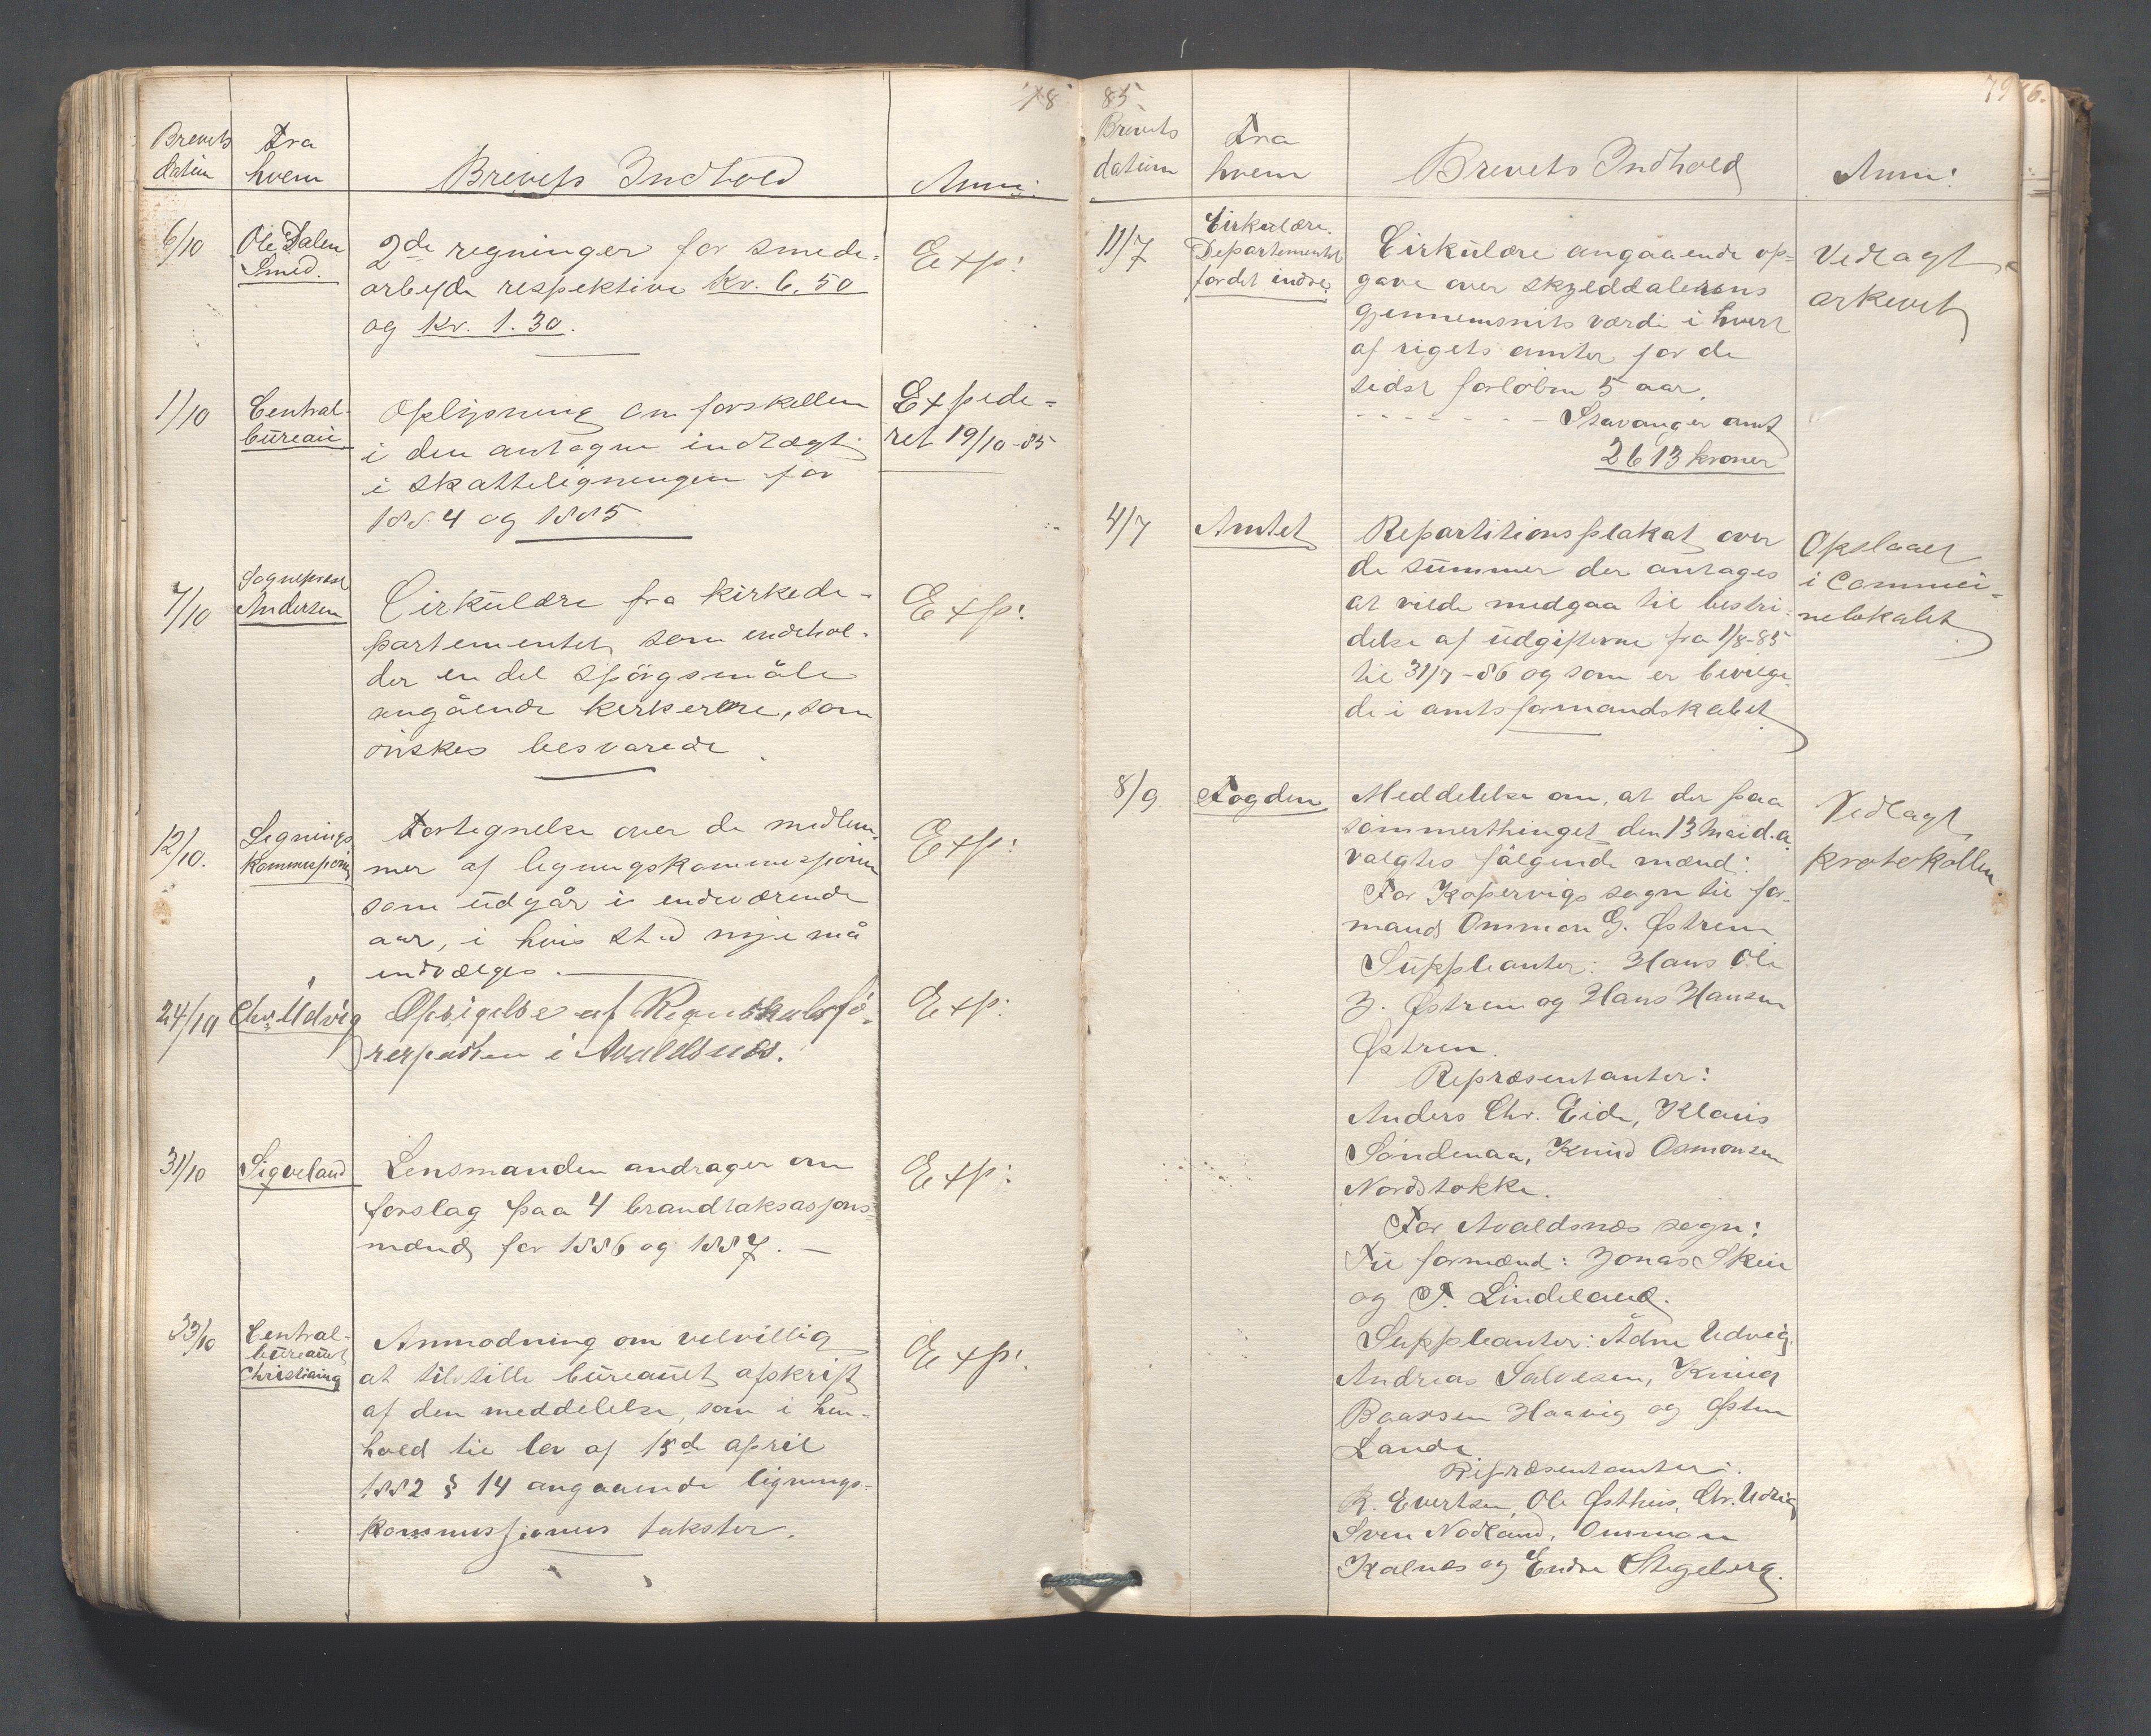 18
Brevets datum
Fra hvem
Brevets Indhold
Anm:
6/10
Ole Dalen
Smed.
2de regninger for smede-
arbeide respektive kr. 6.50
og kr. 1.30.
Exp:
1/10
Central-
bureau
Oplysning om forskellen
i den antagne indtægt
i skatteligningen for
1884 og 1885
Expede-
ret 19/10-85
7/10
Sogneprest
Andersen
Cirkulære fra kirkede-
partementet, som indehol-
der en del spörgsmåle
angående kirkerne, som
önskes besvarede.
Exp:
12/10.
Lignings
kommissjon
Fortegnelse over de medlem-
mer af ligningskommissjonen
som udgår i indeværende
aar, i hvis sted nye må
indvælges.
Exp:
24/10
Chr. Udvig
Opsigelse af Regnskabsfö-
rerposten i Avaldsnæs.
Exp:
31/10
Sigveland
Lensmanden andrager om
forslag paa 4 brandtaksasjons-
mænd for 1886 og 1887.
Exp:
33/10
Central-
bureauet
Christiania
Anmodning om velvillig
at tilstille bureauet afskrift
af den meddelelse, som i hen-
hold til lov af 15d april
1882 § 14 angaaende lignings-
kommissjonens takster.
Exp:
85
79
76.
Brevets datum
Fra hvem
Brevets Indhold
Anm:
11/7
Cirkulære.
Departementet
for det indre.
Cirkulære angaaende op-
gave over skylddalerens
gjennemsnits værdi i hvert
af rigets amter for de
sidst forlöbne 5 aar.
Stavanger amt
2613 kroner
Vedlagt
arkivet
4/7
Amtet
Repartitionsplakat over
de summer der antages
at ville medgaa til bestri-
delse af udgifterne fra 1/8-85
til 31/7-86 og som er bevilge-
de i amtsformandskabet
Opslaaet
i Commu-
nelokalet
8/9
Fogden
Meddelelse om, at der paa
sommerthinget den 13 mai d.a.
valgtes følgende mænd:
For Kopervigs sogn til for-
mand Ommon G. Østrem
Suppleanter: Hans Ole
J. Østrem og Hans Hansen
Østrem.
Repræsentanter:
Anders Chr. Eide, Klaus
Söndenaa, Knud Osmonsen
Nordstokke.
For Avaldsnæs sogn:
Til formænd: Jonas Skeie
og T. Lindeland.
Suppleanter: Ådne Udvig,
Andreas Salvesen, Knud
Baarsen Haavig og Østen
Lande
Repræsentanter:
R. Evertsen, Ole Østhus, Chr. Udvig
Sven Nodland, Ommon
Kalnes og Endre Stegeberg.
Vedlagt
protokollen